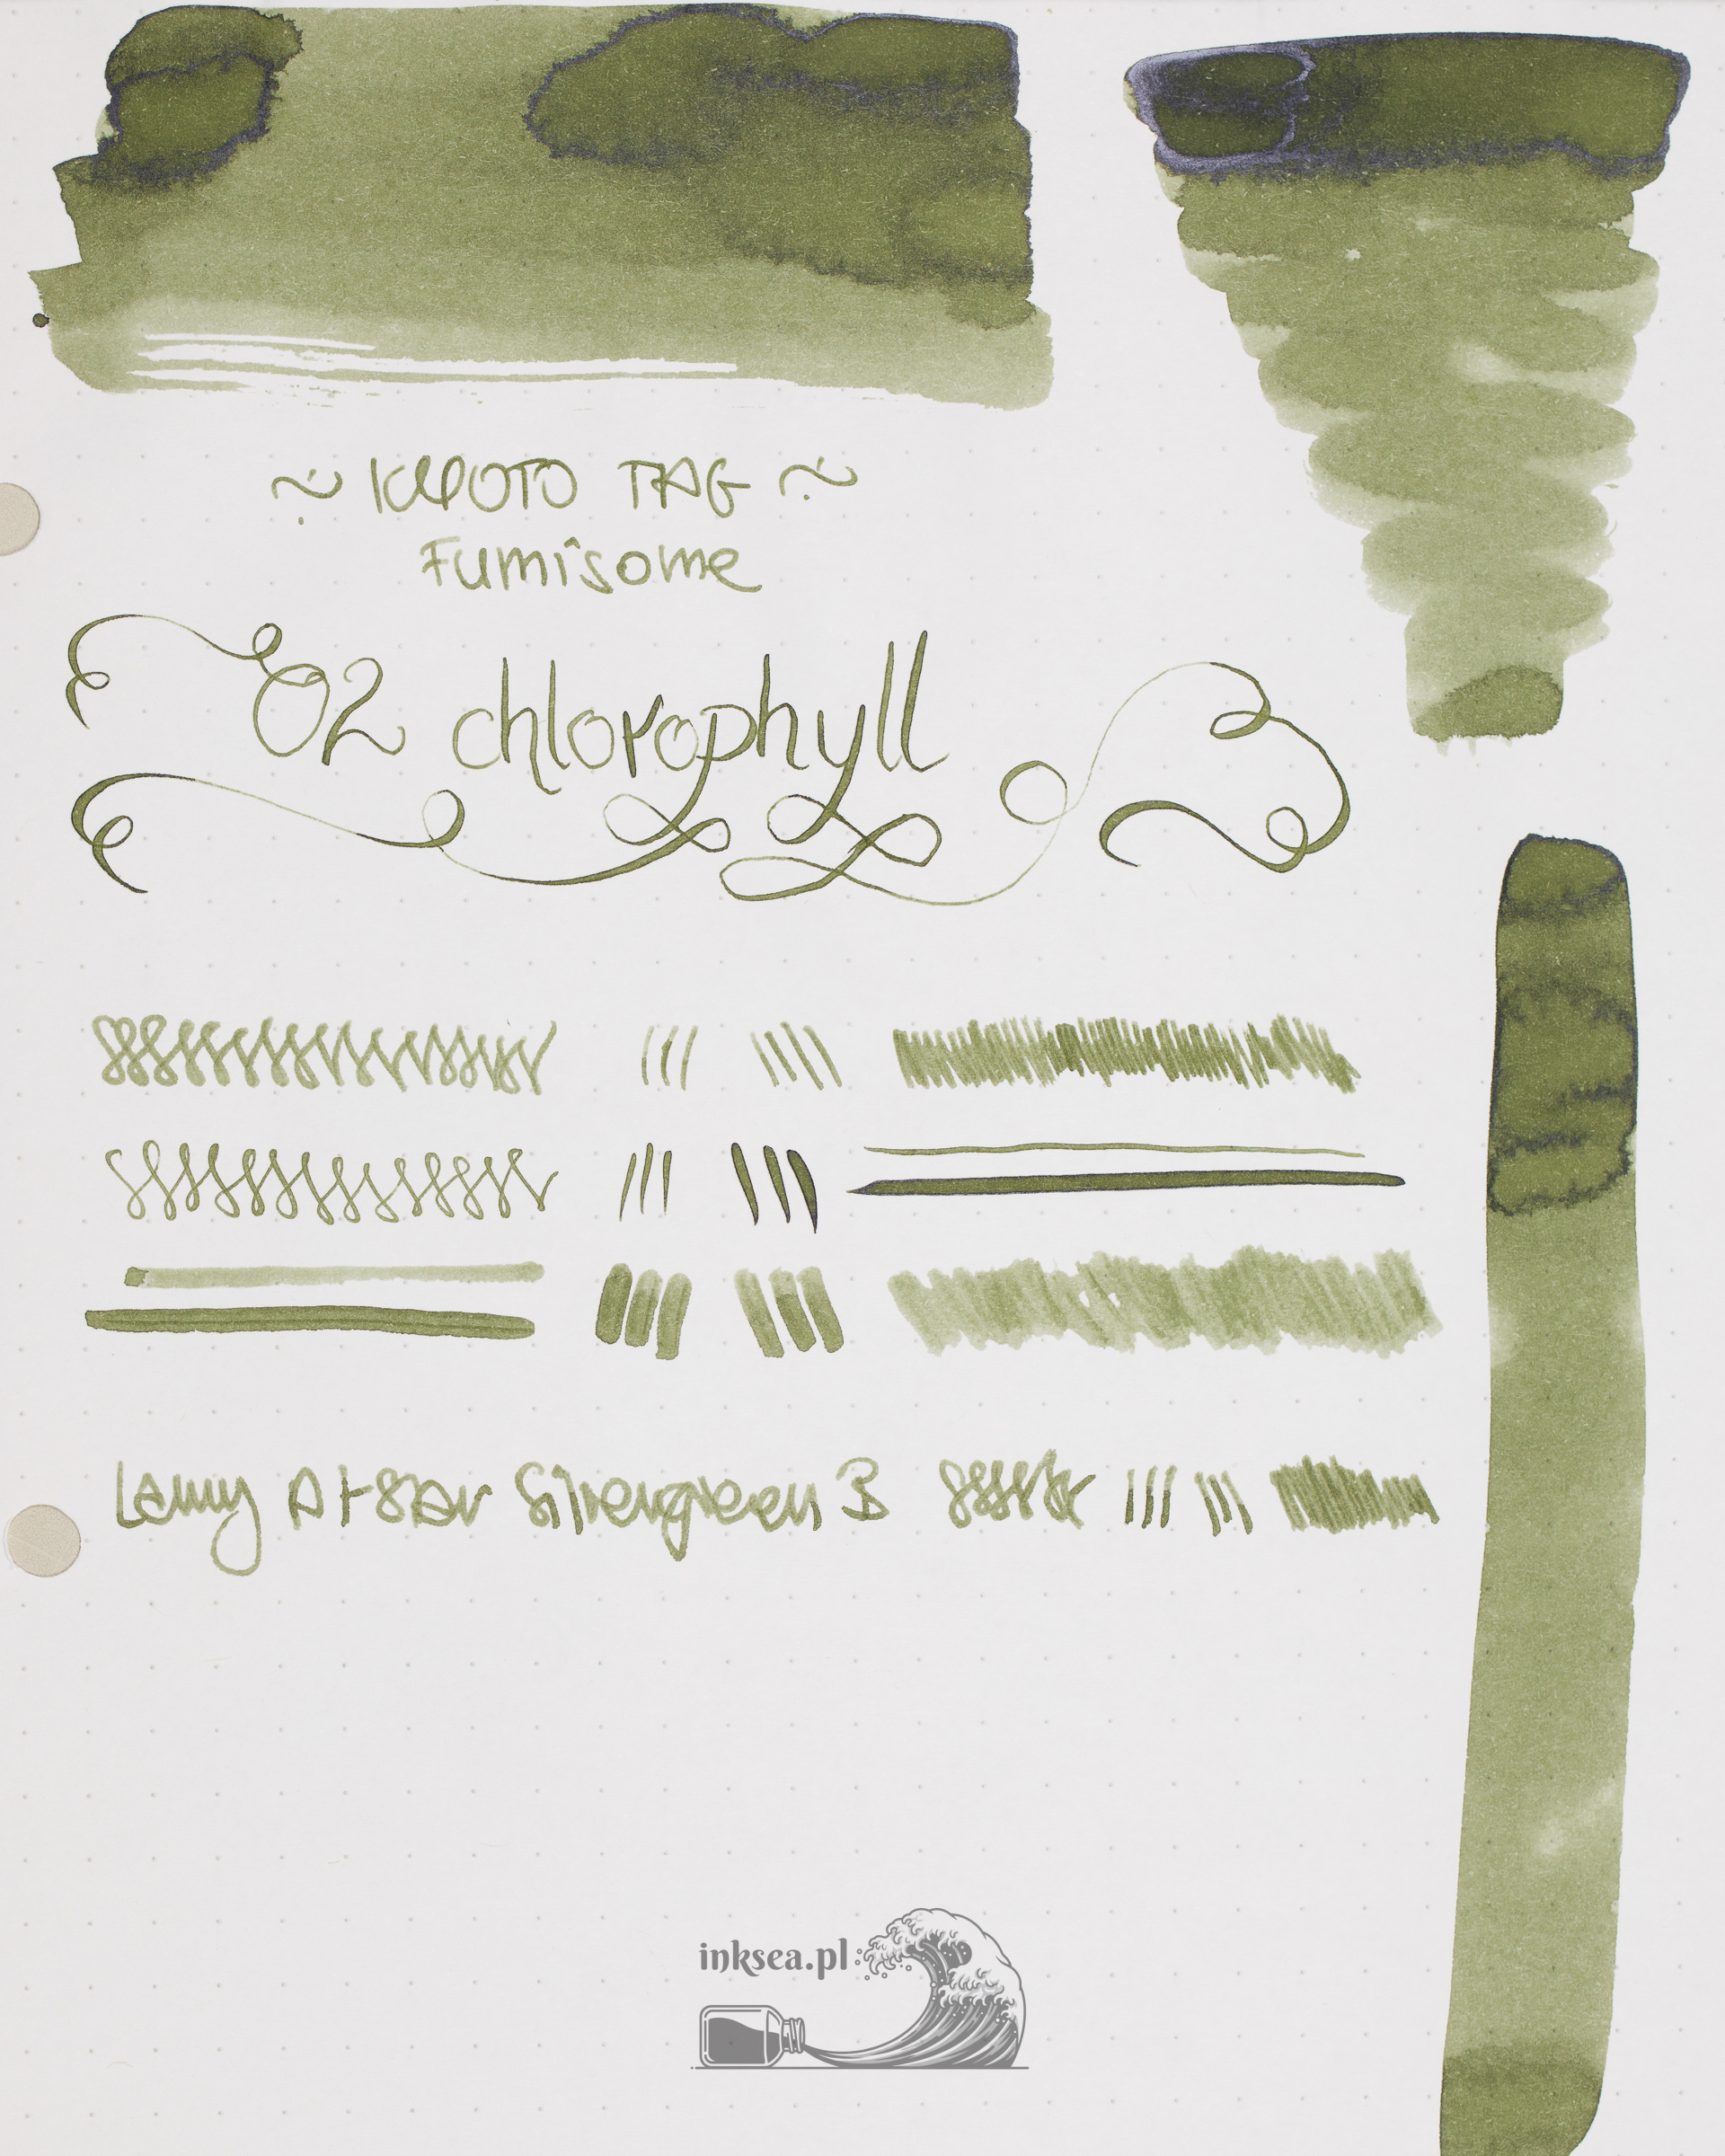 ~ KYOTO TAG ~
Fumisome
02 chlorophyll
Lamy Al-Star Silvergreen B
inksea.pl